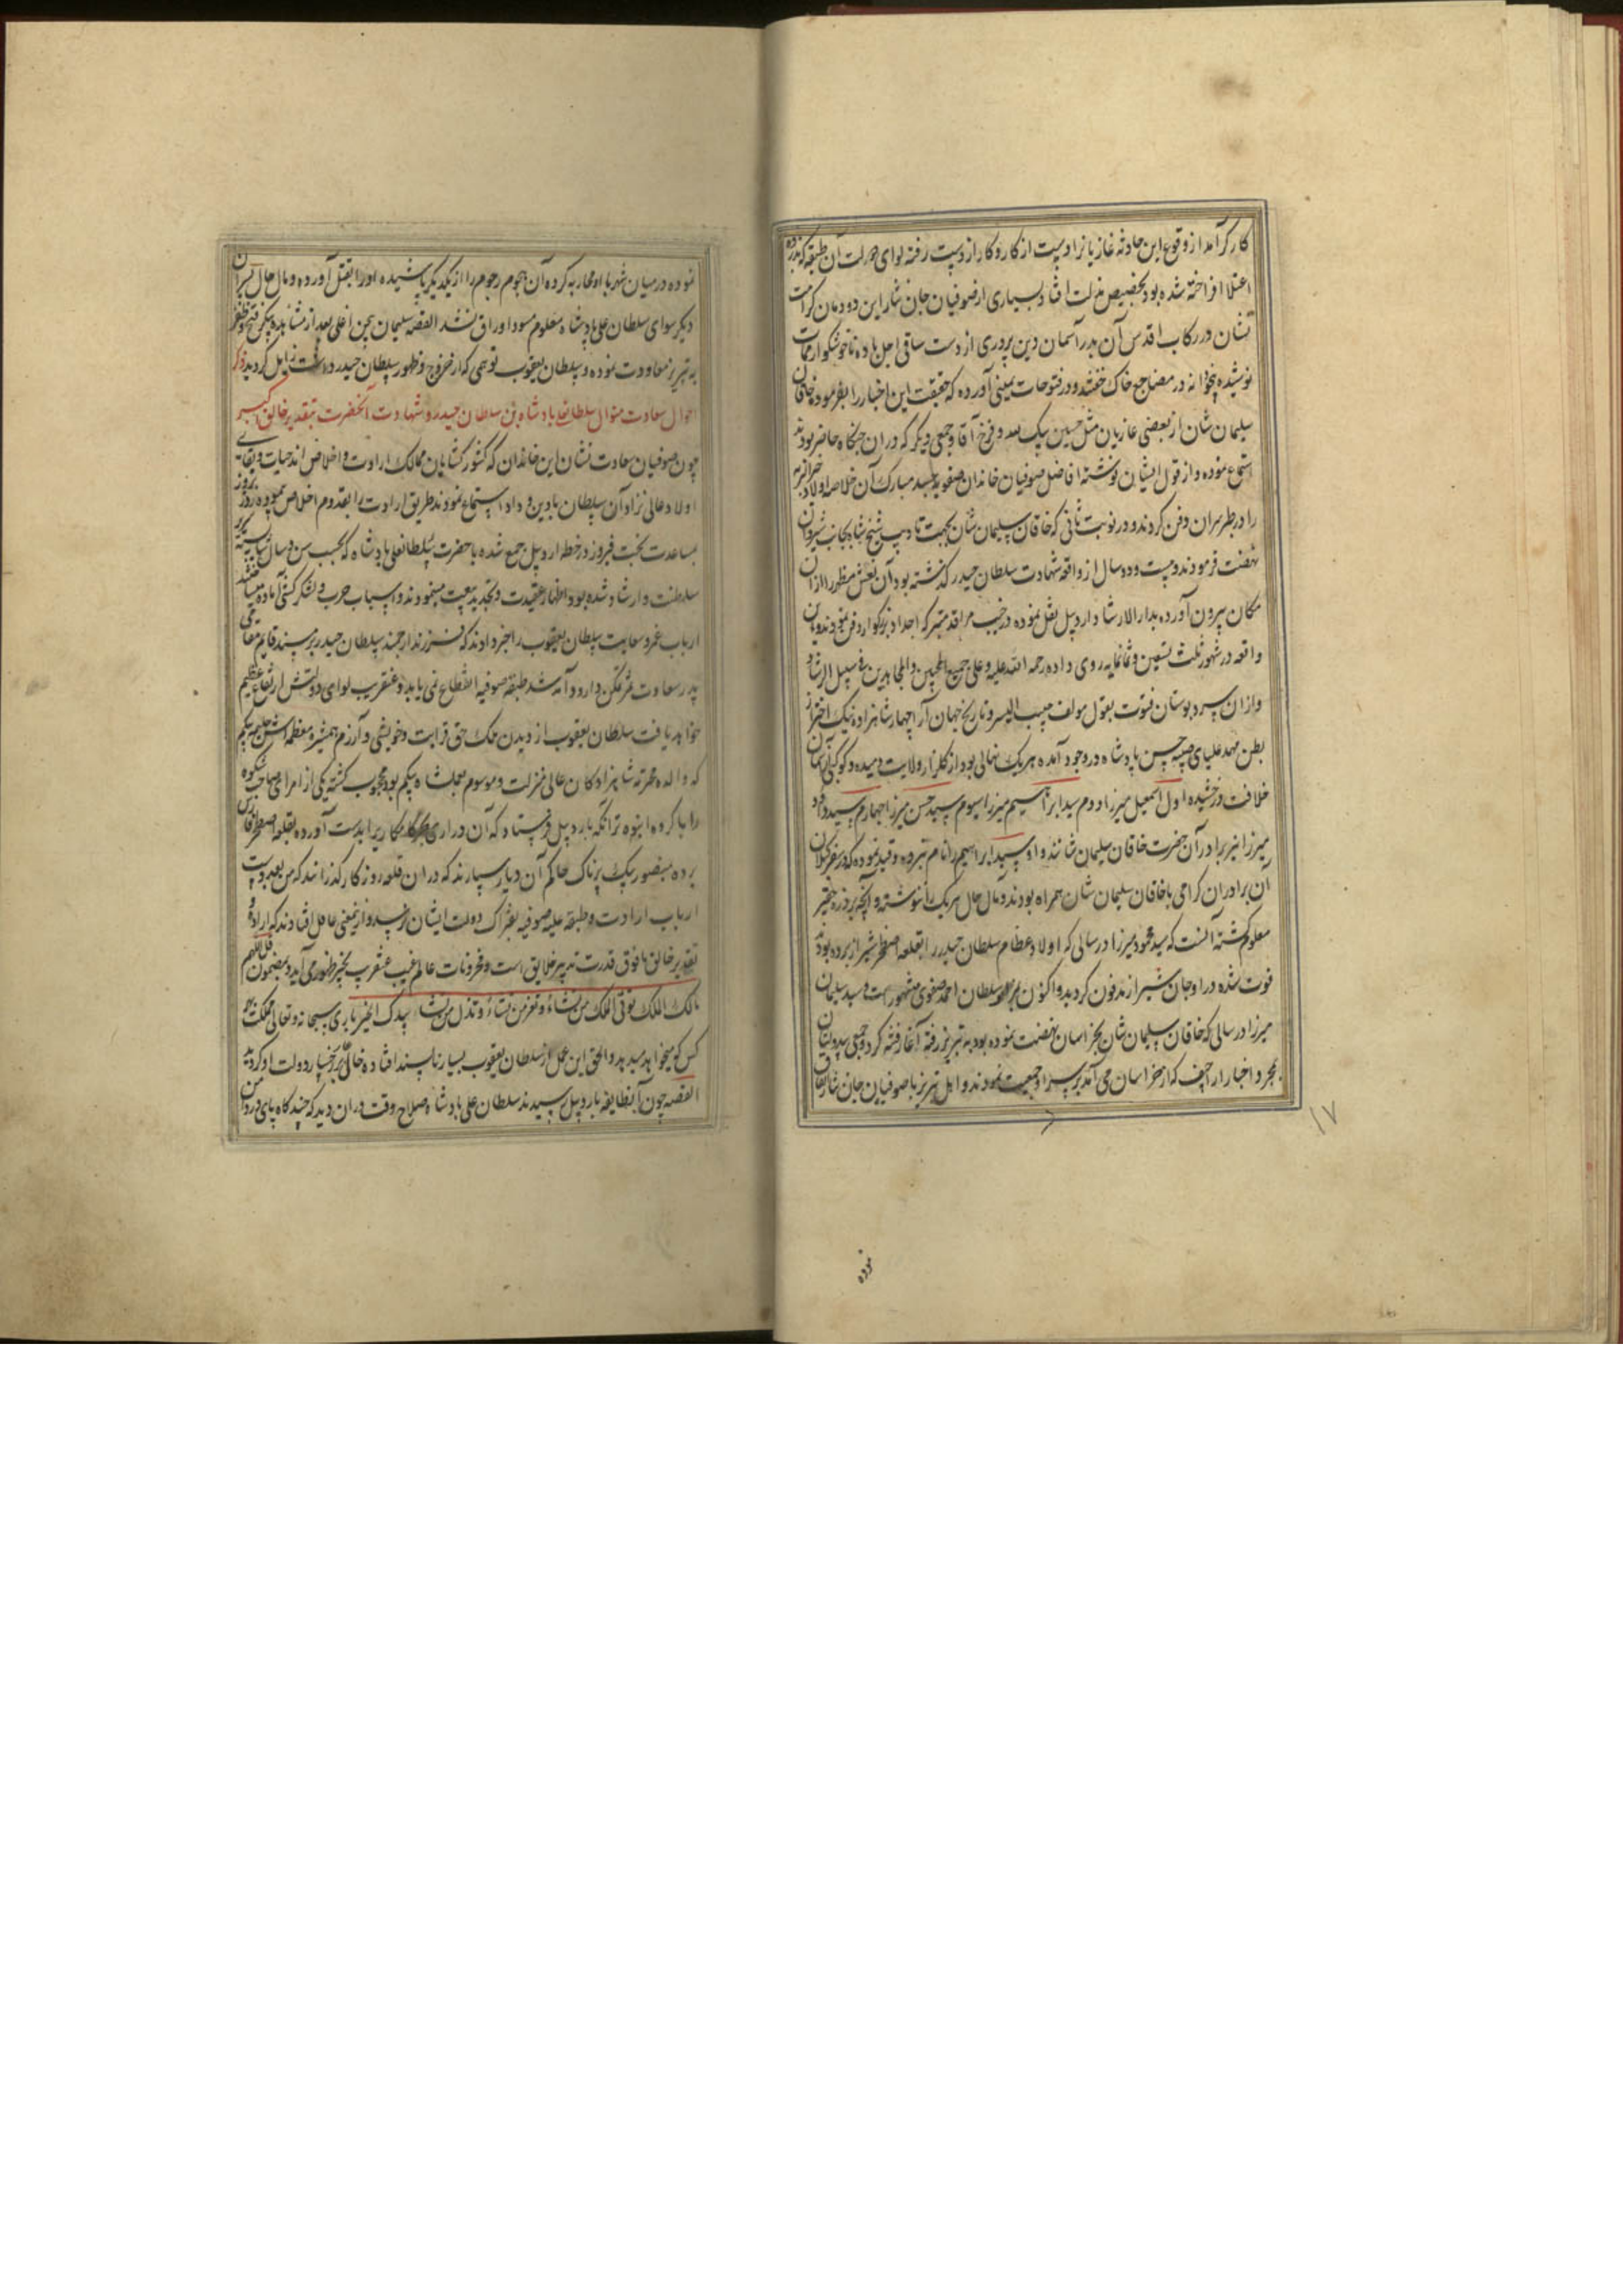 کار کرآمد از وقوع این حادثه غازیانرا دست از کار و کار از دست رفته لوای دولت آن طبقه که بذروه
اعتلا افراخته شده بود بحضیض مذلت افتاد بسیاری از صوفیان جان نثار این دودمان کرامت
نشان در رکاب اقدس آن بدر آسمان دین پروری از دست ساقی اجل باده ناخوشکوار ممات
نوشیده در مضاجع خاک خفتند و در فتوحات یمینی آورده که حقیقت این اخبار را بفرموده خاقان
سلیمان شان از بعضی غازیان مثل حسین بیک لله و فرخ آقا و جمعی دیگر که در ان جنکاه حاضر بودند
استماع نموده و از قول ایشان نوشته افاضل صوفیان خاندان صفویه جسد مبارک آن خلاصه اولاد خیرالبشر
را در طبرسران دفن کردند و در نوبت ثانی که خاقان سلیمان شان بجهت تادیب شیخ شاه بجانب شیروان
نهضت فرمودند و بیست و دو سال از واقعه شهادت سلطان حیدر کذشته بود آن نعش مظهر را از ان
مکان بیرون آورده بدار الارشاد اردبیل نقل نموده در جنب مراقد متبرکه اجداد بزرکوار دفن نمودند و این
واقعه در شهور ثلث تسعین و ثمانمایه روی داده رحمه الله علیه و علی جمیع المحبین والمجاهدین فی سبیل الرشاد
و از ان سرو بوستان فتوت بقول مولف حبیب السیر و تاریخ جهان آرا چهار شاهزاده نیک اختر از
بطن مهد علیای صبیه حسن پادشاه در وجود آمده هر یک نهالی بود از کلزار ولایت دمیده و کوکبی از آسمان
خلافت درخشیده اول اسمعیل میرزا دوم سید ابراهیم میرزا سیوم سید حسن میرزا چهارم سید داود
میرزا نیز برادر آن حضرت خاقان سلیمان شانند و او سید ابراهیم را نام نبرده و قید نموده که در سفر کیلان
آن برادران کرامی با خاقان سلیمان شان همراه بودند و مآل حال هر یک را ننوشته و آنچه بر ذره حقیر
معلوم کشته آنست که سید محمود میرزا در سالی که اولاد عظام سلطان حیدر را بقلعه اصطخر شیراز برده بودند
فوت شده در اوجان شیراز مدفون کردید و اکنون سلطان احمد صفوی مشهور است و سید سلیمان
میرزا در سالی که خاقان سلیمان شان بخراسان نهضت نموده بود به تبریز رفته آغاز فتنه کرد و جمعی بیدولتان
بمجرد اخبار اراجیف که از خراسان می آمد بر سر او جمعیت نمودند و اهل تبریز با صوفیان جان نثار اتفاق
نموده
۱۷
نموده در میان شهر با او محاربه کرده آن هجوم رجوم را از یکدیکر پاشیده او را بقتل آورده و مآل حال پسران
دیکر سوای سلطان علی پادشاه معلوم مسود اوراق نشد القصه سلیمان بیجن اغلی بعد از مشاهده پیکر فتح و ظفر
به تبریز معاودت نموده و سلطان یعقوب توهمی که از خروج و ظهور سلطان حیدر داشت زایل کردید ذکر
احوال سعادت منوال سلطانعلی پادشاه بن سلطان حیدر و شهادت آنحضرت بتقدیر خالق اکبر
چون صوفیان سعادت نشان این خاندان که کشور کشایان ممالک ارادت و اخلاص اند حیات و بقای
اولاد عالی نژاد آن سلطان با دین و داد استماع نمودند طریق ارادت را بقدوم اخلاص پیموده روز بروز
بمساعدت بخت فیروز در خطه اردبیل جمع شده با حضرت سلطانعلی پادشاه که بحسب سن و سال شایسته سریر
سلطنت و ارشاد شده بود اظهار عقیدت و تجدید بیعت مینمودند و اسباب حرب و لشکر کشی آماده میساختند
ارباب غمز و سعایت سلطان یعقوب را خبر دادند که فرزند ارجمند سلطان حیدر بر مسند قایم مقامی
پدر سعادت اثر تمکن دارد و آمد شد طبقه صوفیه انقطاع نمی یابد و عنقریب لوای دولتش ارتفاع عظیم
خواهد یافت سلطان یعقوب از دیدن نمک حق قرابت و خویشی و آزرم همشیره معظمه اش حلیمه بیکم
که والده محترمه شاهزادکان عالی منزلت و موسوم بعلمشاه بیکم بود محجوب کشته یکی از امرای صاحب شکوه
را با کروه انبوه تراکمه باردبیل فرستاد که آن دراری را بدست آورده بقلعه اصطخر فارس
برده بمنصور بیک پرناک حاکم آن دیار سپارند که در ان قلعه روزکار کذرانند که من بعد دست
ارباب ارادت و طبقه علیه صوفیه بفتراک دولت ایشان نرسد و از یمعنی غافل افتادند که اراده و
تقدیر خالق ما فوق قدرت تدبیر خلایق است و مخزونات عالم غیب عنقریب بحیز ظهور می آید و بمضمون قل اللهم
مالک الملک توتی الملک من تشاء و تعز من تشاء و تذل من تشاء بیدک الخیر باری سبحانه و تعالی مملکت بهر
کس کو میخواهد میدهد و الحق این عمل از سلطان یعقوب بسیار ناپسند افتاده خالی بر رخسار دولت او کردید
القصه چون آنطایفه باردبیل رسیدند سلطان علی پادشاه صلاح وقت در ان دید که چند کاه پای در دامن